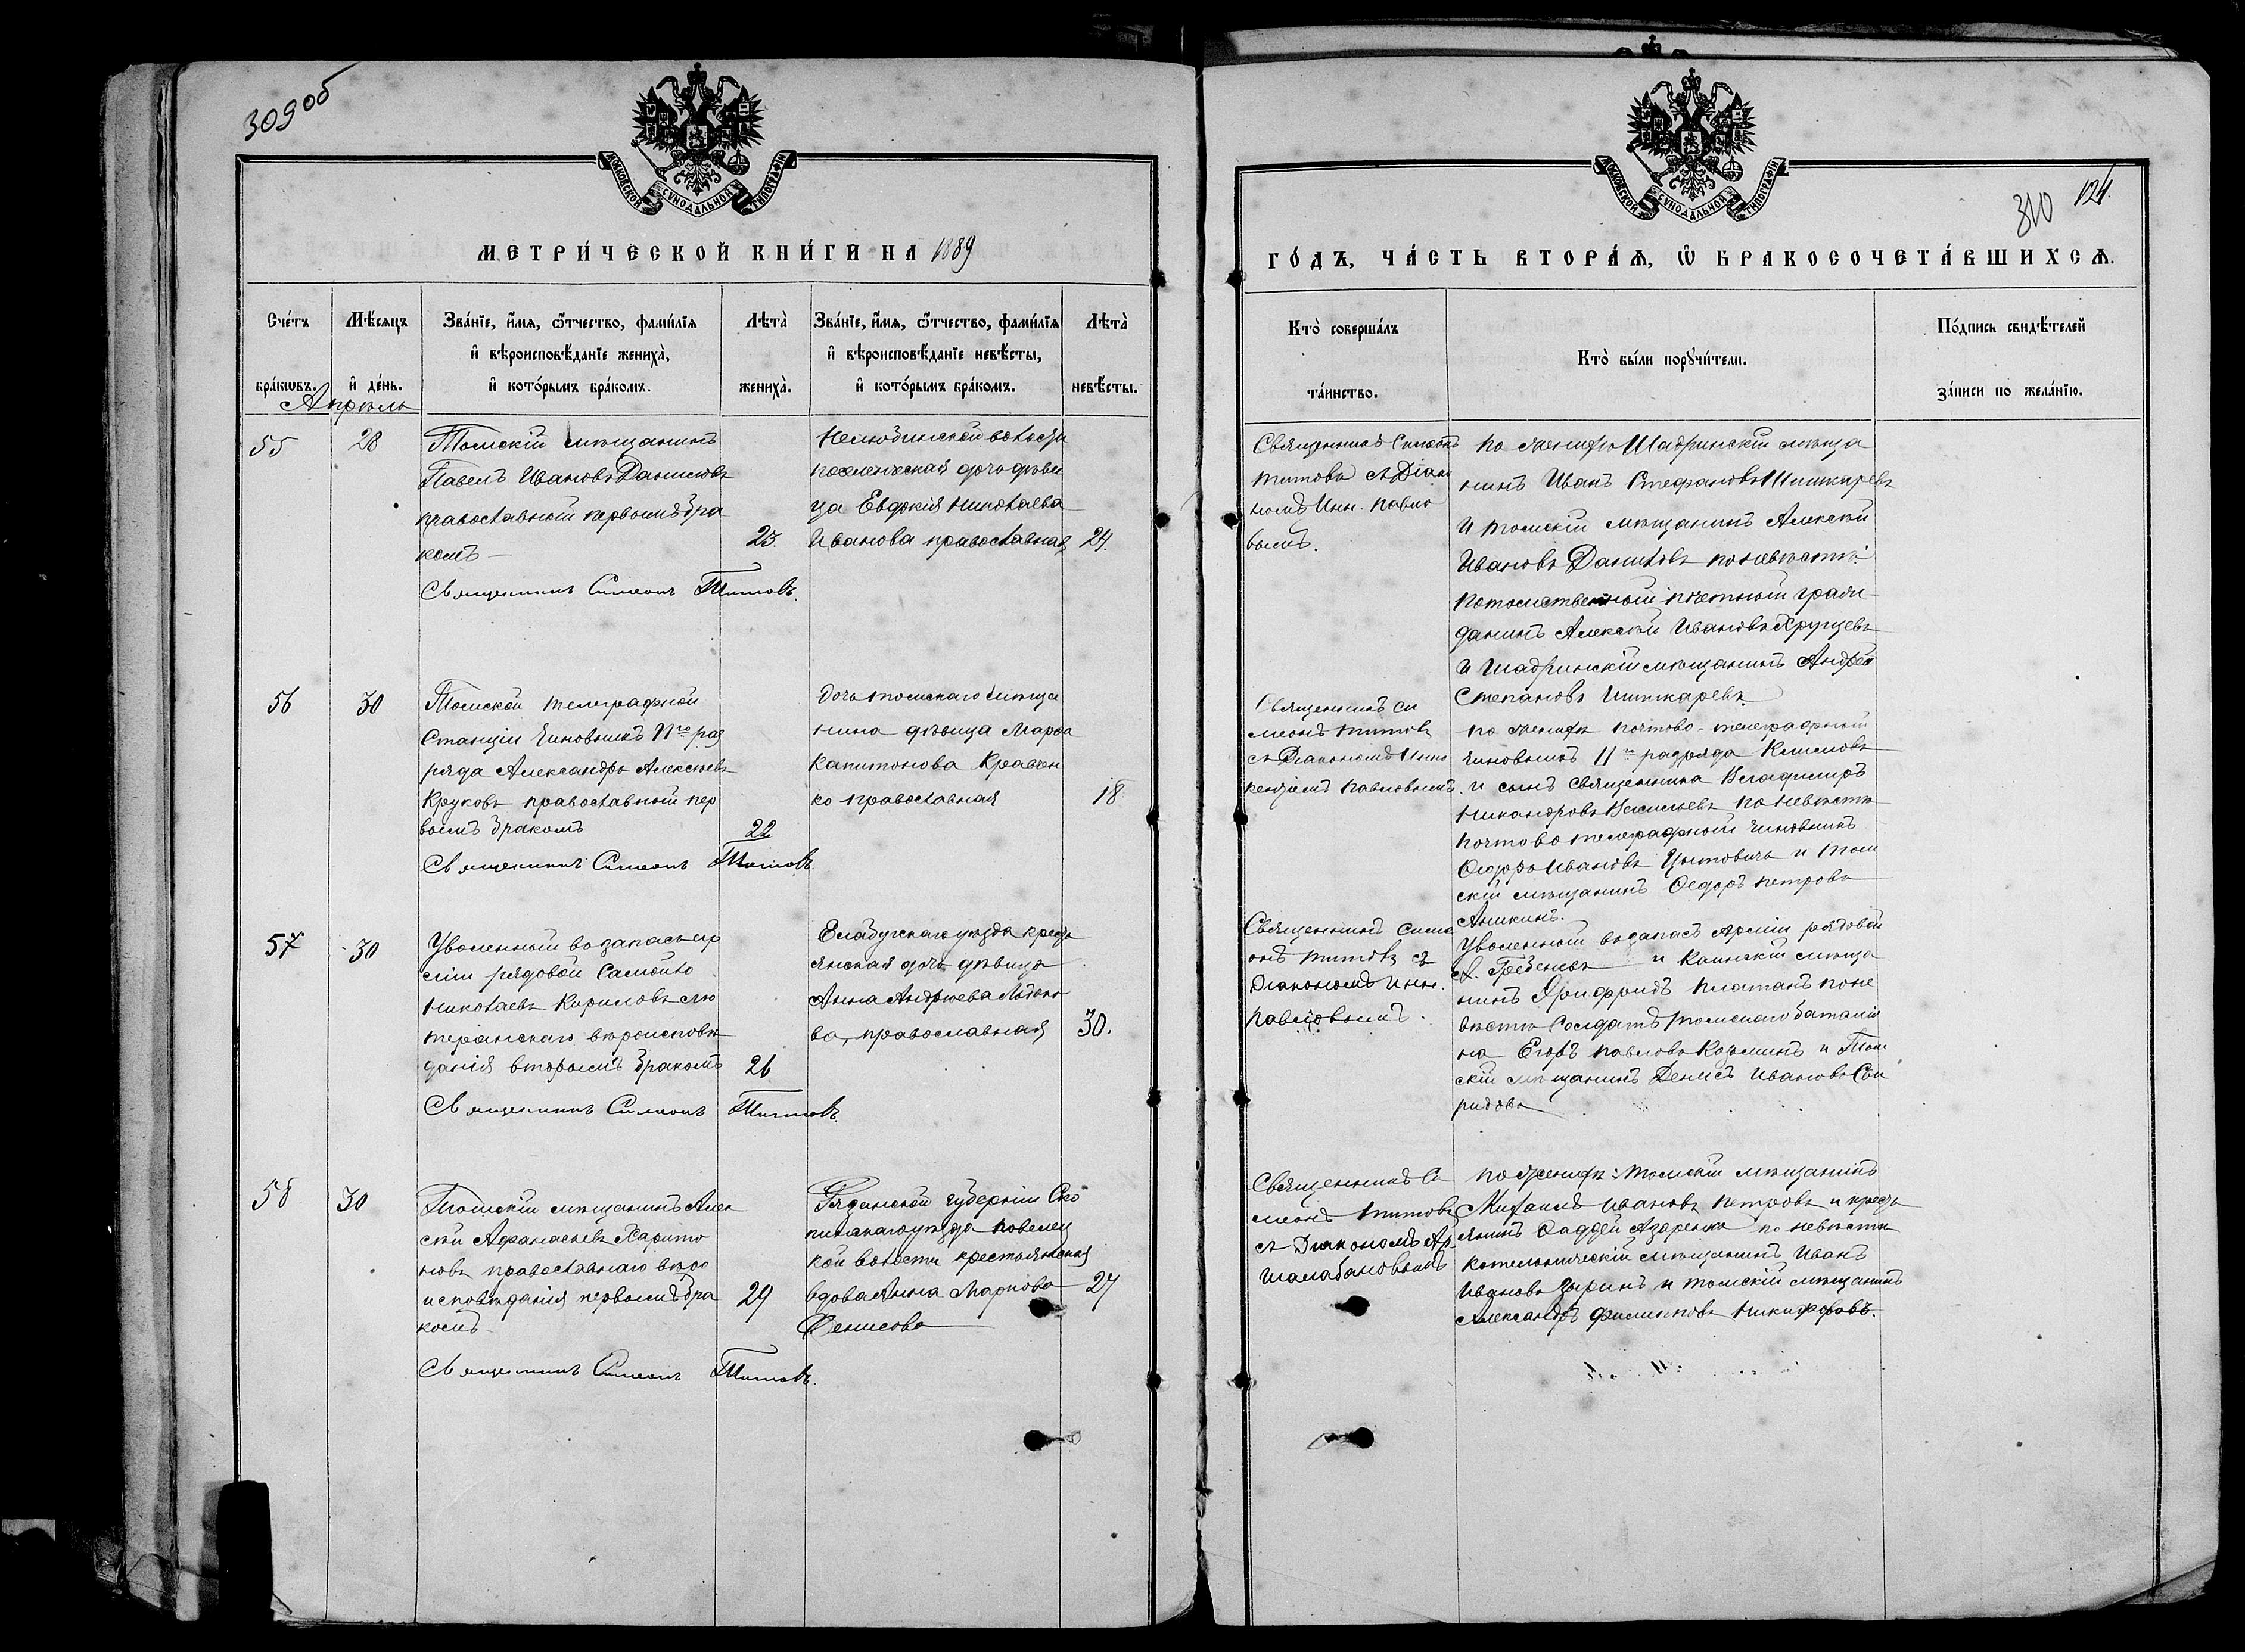 309 об
МОСКОВСКОЙ СѴНОДАЛЬНОЙ ТИПОГРАФІИ
МЕТРИ́ЧЕСКОЙ КНИ́ГИ НА 1889
Сче́тъ бра́кѡвъ.
Мѣ́сяцъ и҆ де́нь.
Зва́нїе, и҆́мя, ѻ҆́тчество, фами́лїя
и҆ вѣроисповѣ́данїе жениха̀,
и҆ кото́рымъ бра́комъ.
Лѣта̀ жениха̀.
Зва́нїе, и҆́мя, ѻ҆́тчество, фами́лїя
и҆ вѣроисповѣ́данїе невѣ́сты,
и҆ кото́рымъ бра́комъ.
Лѣта̀ невѣ́сты.
Апрѣль
55
28
Томскій мѣщанинъ
Павелъ Ивановъ Даниловъ
православный первымъ бра
комъ
23.
Нелюбинской волости
поселенческая дочь дѣви
ца Евдокія Николаева
Иванова православная
24.
Священникъ Симеонъ Титовъ.
56
30
Томской телеграфной
Станціи Чиновникъ раз
ряда Александръ Алексѣевъ
Круковъ православный пер
вымъ бракомъ
22
Дочь томскаго мѣща
нина дѣвица Марѳа
Капитонова Кравчен
ко православная
18
Священникъ Симеонъ Титовъ.
57
30
Уволенный въ запасъ ар
міи рядовой Самойло
Николаевъ Кириловъ лю
теранскаго вѣроисповѣ
данія вторымъ бракомъ
26
Елабугскаго уѣзда кресть
янская дочь дѣвица
Анна Андреева
ва, православная
30.
Священникъ Симеонъ Титовъ.
58
30
Томскій мѣщанинъ Алек
сѣй Афанасьевъ Харито
новъ православнаго вѣро
исповѣданія первымъ бра
комъ
29
Рязанской губерніи Ско
пинскаго уѣзда Повелец
кой волости крестьянская
вдова Анна Маркова
Денисова
27
Священникъ Симеонъ Титовъ.
МОСКОВСКОЙ СѴНОДАЛЬНОЙ ТИПОГРАФІИ
310
124.
ГО́ДЪ, ЧА́СТЬ ВТОРА́Ѧ, Ѡ҆ БРАКОСОЧЕТА́ВШИХСѦ.
Кто̀ соверша́лъ
та́инство.
Кто̀ бы́ли порꙋчи́тели.
По́дпись свидѣ́телей
за́писи по жела́нїю.
Священникъ Симеонъ
Титовъ съ Діако
номъ Инн. Павло
вымъ.
По женихѣ Шадринскій мѣща
нинъ Иванъ Стефановъ Шишкаревъ
и томскій мѣщанинъ Алексѣй
Ивановъ Даниловъ по невѣстѣ:
потомственный почетный граж
данинъ Алексѣй Ивановъ Хрущевъ
и Шадринскій мѣщанинъ Андрей
Степановъ Шишкаревъ
Священникъ Си
меонъ Титовъ
съ Діакономъ Инно
кентіемъ Павловымъ.
по женихѣ почтово-телеграфный
чиновникъ разряда Климовъ
и сынъ священника Владимиръ
Никандровъ Васильевъ по невѣстѣ
почтово телеграфный чиновникъ
Ѳедоръ Ивановъ Цытовичъ и Том
скій мѣщанинъ Ѳедоръ Петровъ
Аникинъ.
Священникъ Симе
онъ Титовъ съ
Діакономъ Инн.
Павловымъ.
Уволенный въ запасъ Арміи рядовой
А. Гребеневъ и Каинскій мѣща
нинъ Платанъ по не
вѣстѣ Солдатъ томскаго баталіо
на Егоръ Павловъ Козьминъ и Том
скій мѣщанинъ Денисъ Ивановъ Сви
ридовъ
Священникъ Си
меонъ Титовъ
съ Діакономъ Ар.
Шалабановымъ
По женихѣ: томскій мѣщанинъ
Михаилъ Ивановъ Петровъ и кресть
янинъ Фаддей Азаренко по невѣстѣ
Котельническій мѣщанинъ Иванъ
Ивановъ Зыринъ и томскій мѣщанинъ
Александръ Филиповъ Никифоровъ.